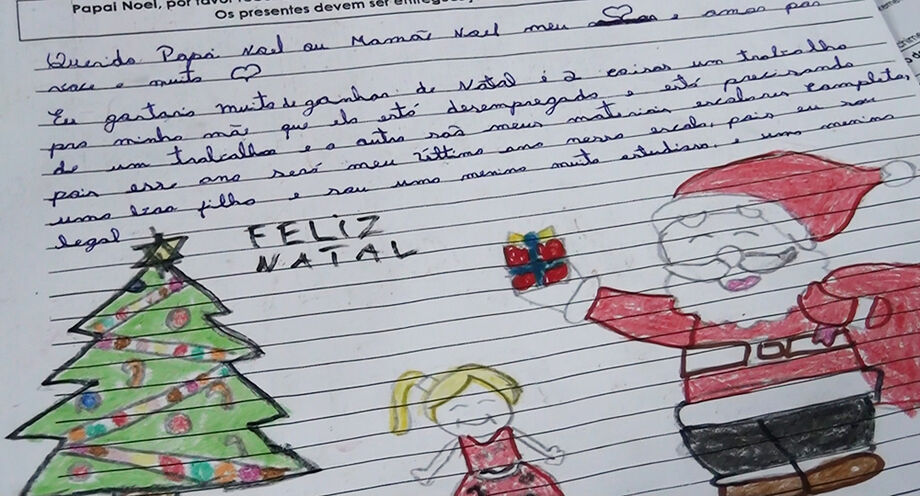 Papai Noel, por favor
Os presentes devem ser entregues
Querido Papai Noel ou Mamãe Noel meu e amor por
voce e muito
Eu gostaria muito de ganhar de Natal é 2 coisas um trabalho
pra minha mãe que ela está desempregado e está precisando
de um trabalho e o outro são meus materiais escolares completo,
pois esse ano será meu último ano nessa escola, pois eu sou
uma boa filha e sou uma menina muito estudiosa, e uma menina
legal
FELIZ
NATAL